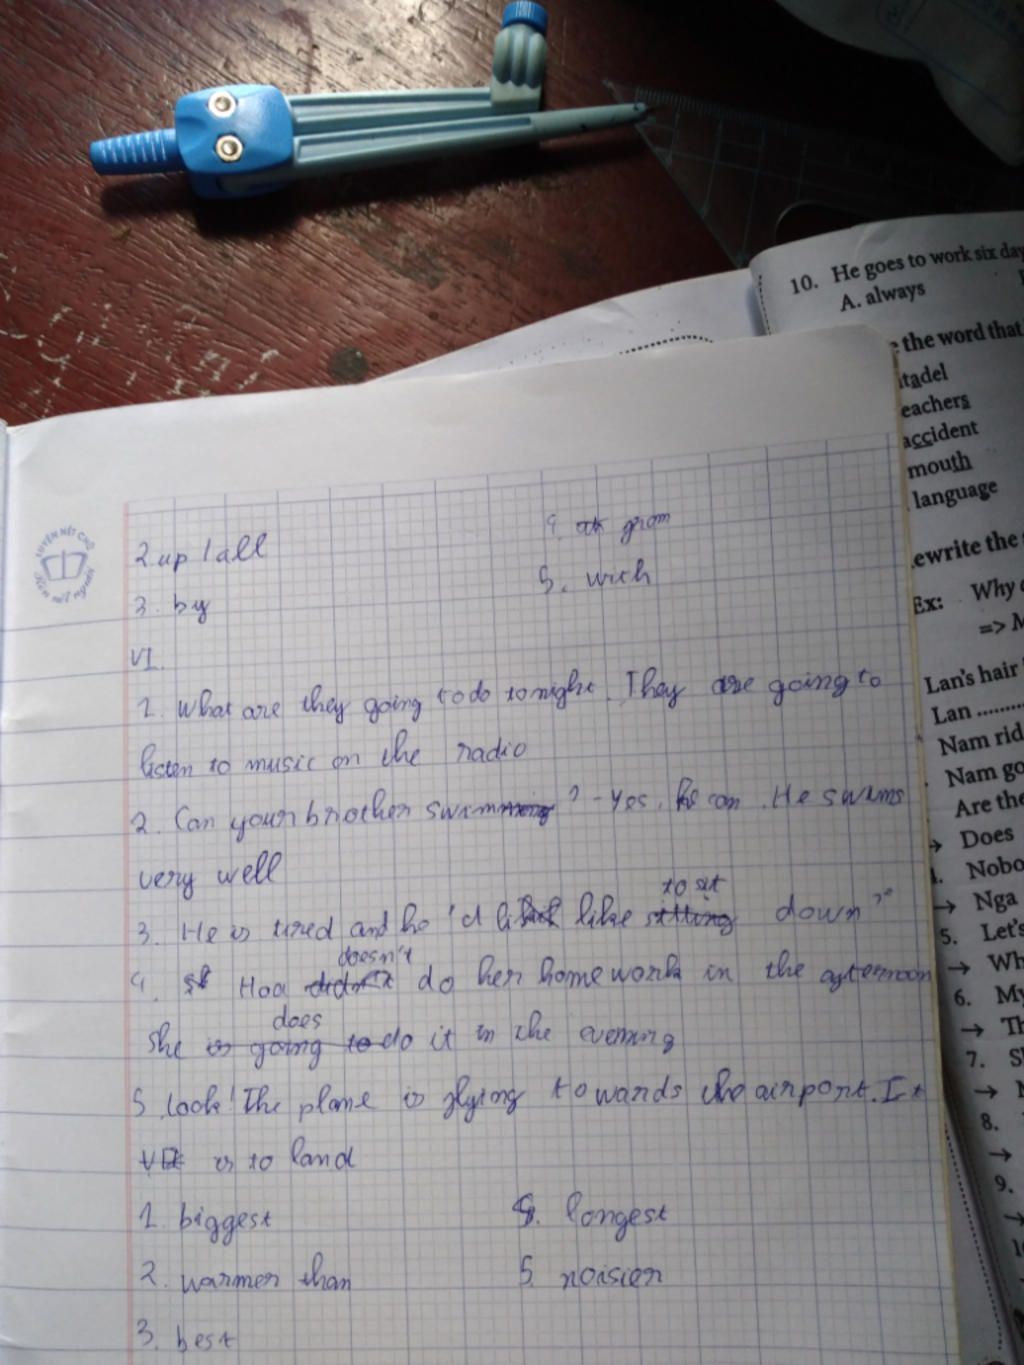 10. He goes to work six day
A. always
e the word that
itadel
eachers
accident
mouth
language
ewrite the
Ex: Why
=> M
Lan's hair
Lan ..........
Nam rid
Nam go
Are the
→ Does
Nobo
→ Nga
5. Let's
→ Wh
6. My
→ Th
7. Sh
→ M
8.
→
9.
→
10
LUYỆN NÉT CHỮ
Rèn nết người
2. up / all
4. from
3. by
5. with
VI.
1. What are they going to do tonight. They are going to
listen to music on the radio
2. Can your brother swim ? - Yes, he can . He swims
very well
3. He is tired and he 'd like to sit down
4. Hoa doesn't do her home work in the afternoon
She does it in the evening
5. look! The plane is flying towards the airport. It
is to land
1. biggest
4. longest
2. warmer than
5. noisier
3. best